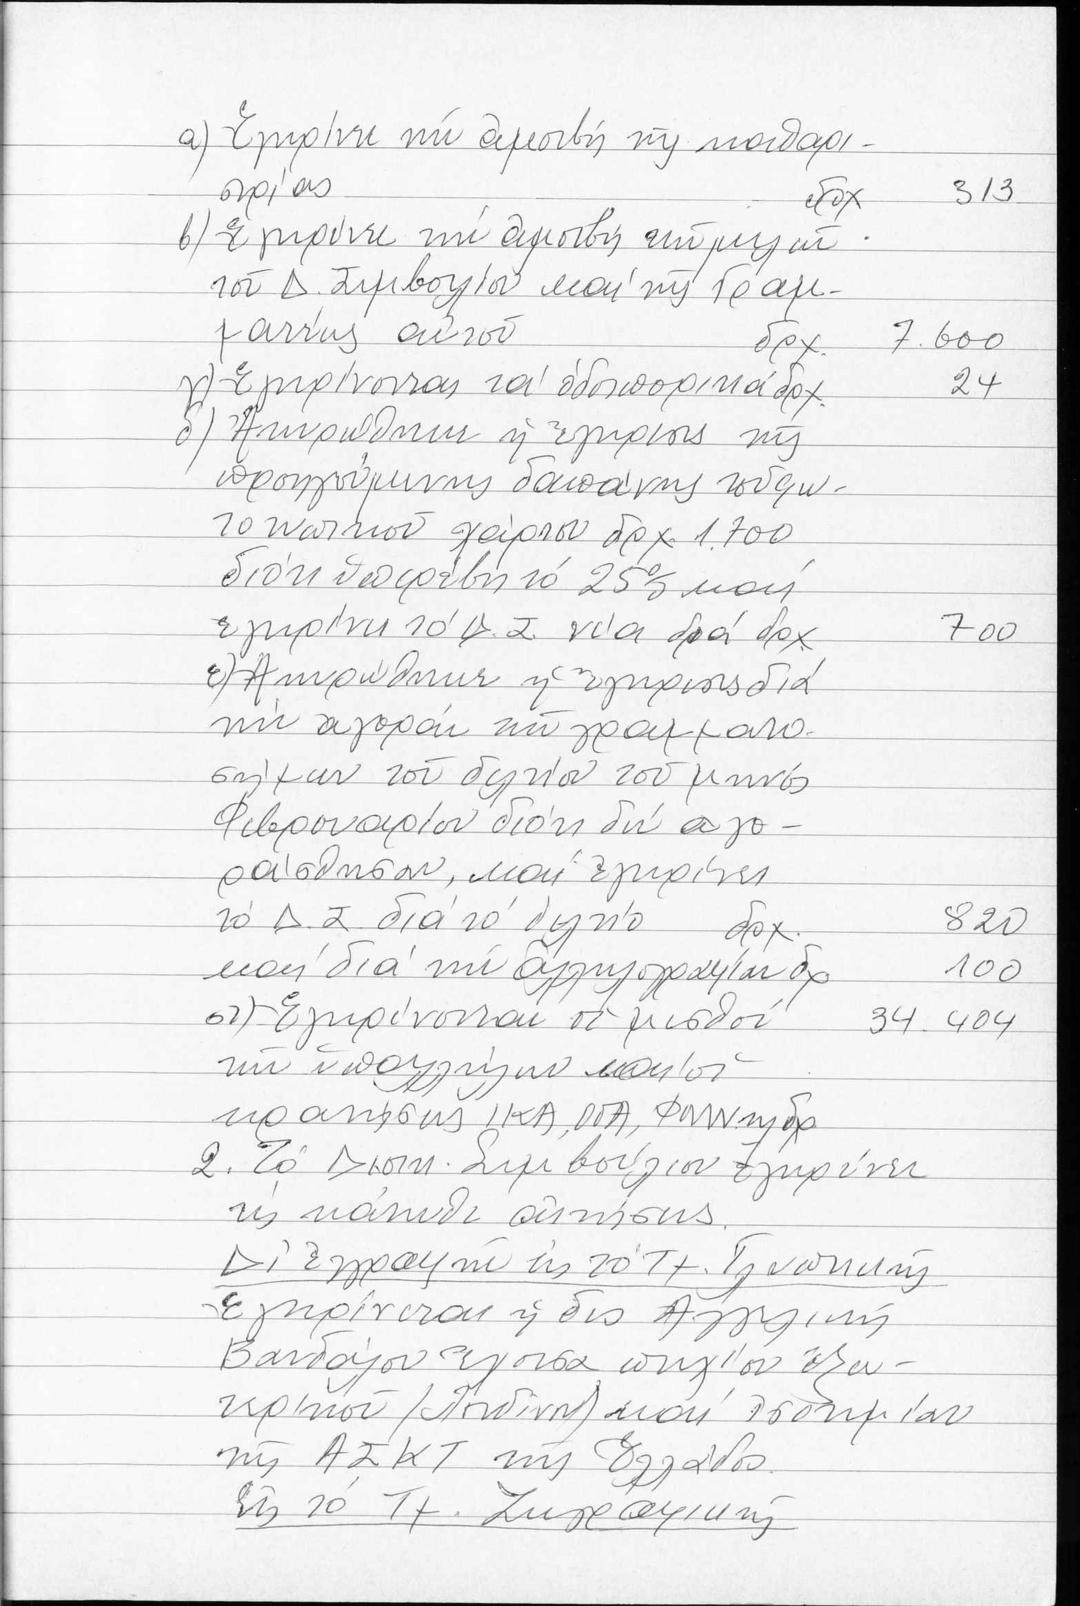 α) Ἐγκρίνει τήν ἀμοιβή τῆς καθαρι-
στρίας δρχ 313
β) Ἐγκρίνει τήν ἀμοιβή τῶν μελῶν
τοῦ Δ. Συμβουλίου καί τῆς Γραμ-
ματέως αὐτοῦ δρχ. 7.600
γ) Ἐγκρίνονται τά ὁδοιπορικά δρχ. 24
δ) Ἀκυρώθηκε ἡ ἔγκρισις τῆς
προηγούμενης δαπάνης τοῦ φω-
τοτυπικοῦ χάρτου δρχ. 1.700
διότι ὑπερέβη τό 25% καί
ἐγκρίνει τό Δ.Σ. νέα δρχ 700
ε) Ἀκυρώθηκε ἡ ἔγκρισις διά
τήν ἀγοράν τῶν γραμματο-
σήμων τοῦ δελτίου τοῦ μηνός
Φεβρουαρίου διότι δέν ἀγο-
ράσθησαν, καί ἐγκρίνει
τό Δ.Σ. διά τό δελτίο δρχ. 820
καί διά τήν ἀλληλογραφίαν δρ 100
στ) Ἐγκρίνονται οἱ μισθοί 34.404
τῶν ὑπαλλήλων καί οἱ
κρατήσεις ΙΚΑ, ΟΓΑ, δρ
2. Τό Διοικ. Συμβούλιον ἐγκρίνει
τίς κάτωθι αἰτήσεις.
Δι' ἐγγραφήν εἰς τό Τμ. Γλυπτικῆς
Ἐγκρίνεται ἡ δις Ἀγγελική
Βανδάλου ἔχουσα πτυχίον ἐξω-
τερικοῦ (Λονδίνου) καί ἰσοτιμίαν
τῆς ΑΣΚΤ τῆς Ἑλλάδος.
Εἰς τό Τμ. Ζωγραφικῆς